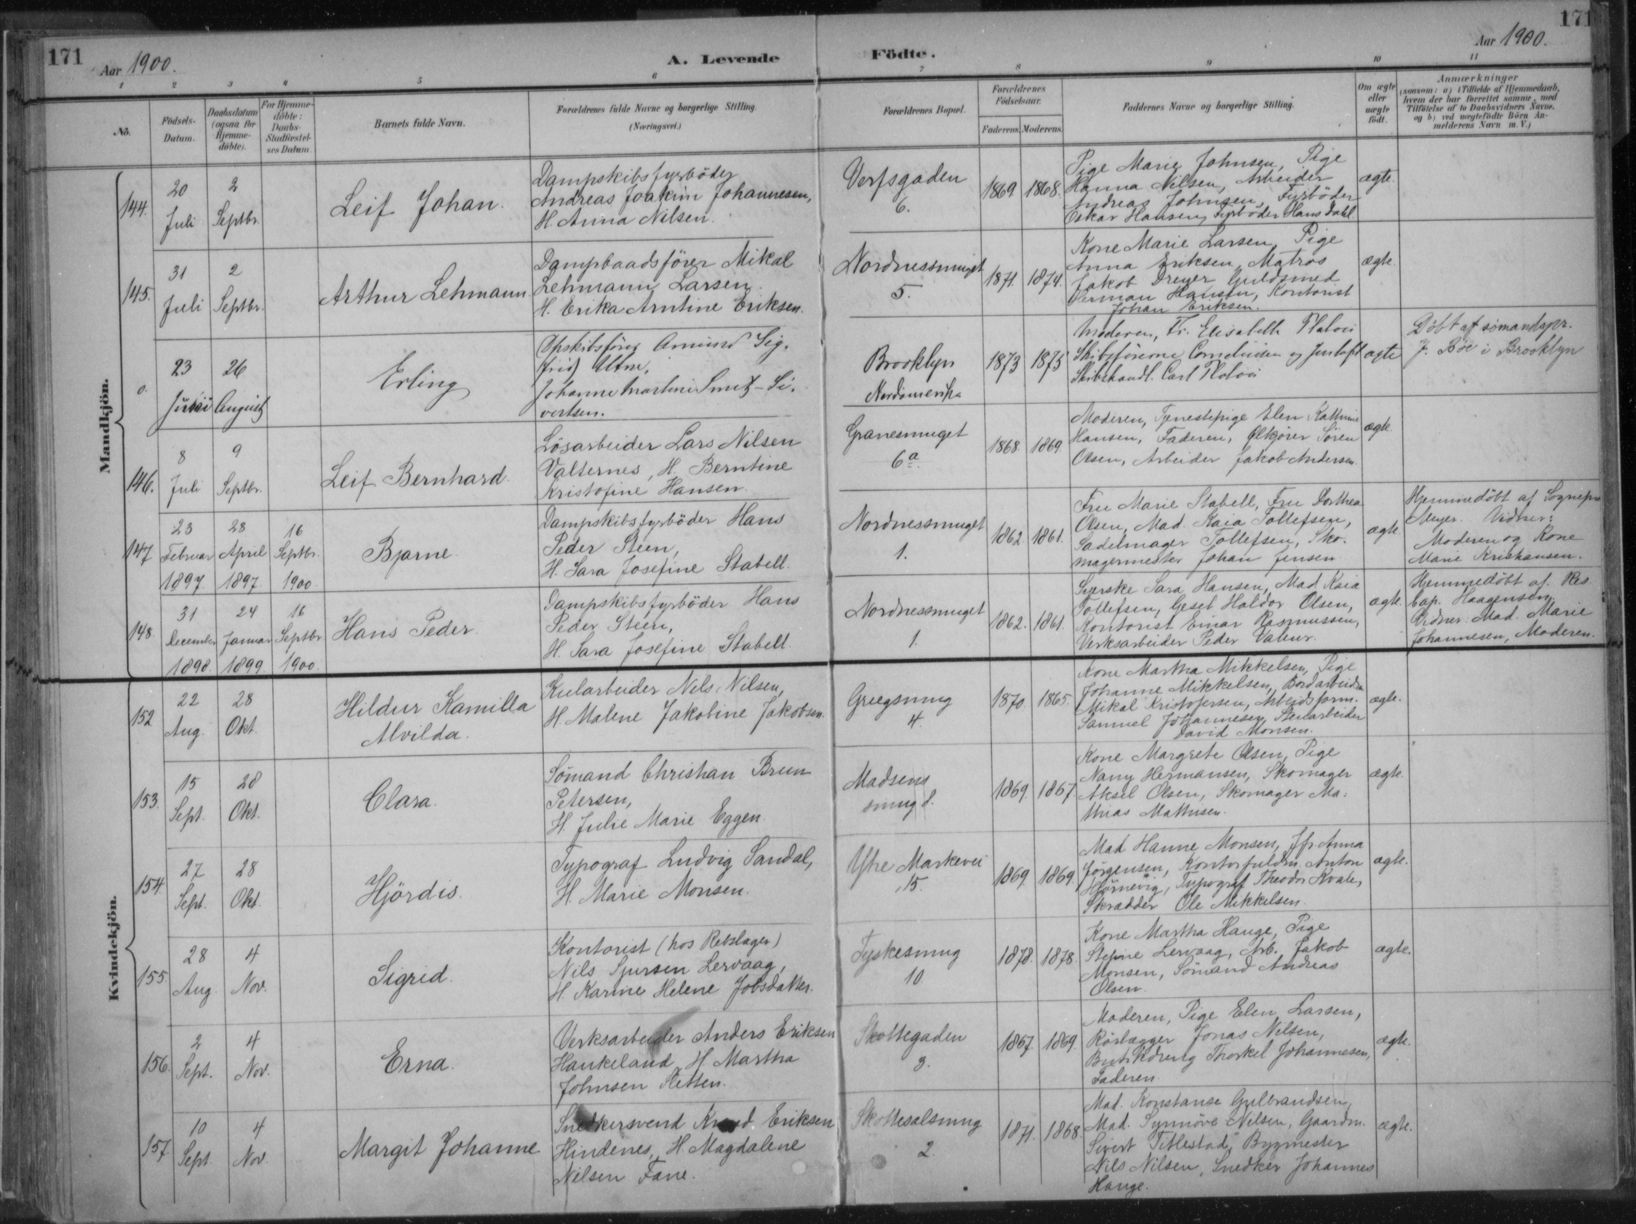 171
Aar 1900.
A. Levende
Födte.
Aar 1900.
171
1
2
3
4
5
6
7
8
9
10
11
No.
Födsels-
Datum.
Daabsdatum
(ogsaa for
Hjemme-
döbte).
For Hjemme-
döbte:
Daabs-
Stadfæstel-
ses Datum
Barnets fulde Navn.
Forældrenes fulde Navne og borgerlige Stilling
(Næringsvei.)
Forældrenes Bopæl.
Forældrenes
Födselsaar.
Faderens. Moderens.
Faddernes Navne og borgerlige Stilling.
Om ægte
eller
uægte
födt.
Anmærkninger
(saasom: a) i Tilfælde af Hjemmedaab,
hvem der har forrettet samme, med
Tilföielse af to Daabsvidners Navne.
og b) ved uægtefödte Börn An-
melderens Navn m. V.)
Mandkjön.
144.
20
Juli
2
Septbr.
Leif Johan.
Dampskibsfyrböder
Andreas Joakim Johannesen,
H. Anna Nilsen.
Verfsgaden
6.
1869 1868.
Pige Marie Johnsen, Pige
Hanna Nilsen, Arbeider
Andreas Johnsen, Fyrböder
Oskar Hansen, Fyrböder Hans Dahl
ægte.
145.
31
Juli
2
Septbr.
Arthur Lehmann
Dampbaadsförer Mikal
Lehmann Larsen
H. Erika Arntine Eriksen.
Nordnessmuget
5.
1871. 1874.
Kone Marie Larsen, Pige
Anna Eriksen, Matros
Jakob Dreyer, Guldsmed
Herman Hansen, Kontorist
Johan Eriksen.
ægte.
0.
23
Juni
26
August
Erling
Amund Sig-
frid Utne,
Johanne Martine Smit-Si-
vertsen.
Brooklyn
Nordamerika
1873 1875
Moderen, Fr. Elisabeth Platou
Skibsförerne Corneliusen og Juuluft
Skibshandl. Carl Platou
ægte
Döbt af sömandspr.
J. Böe i Brooklyn
146.
8
Juli
9
Septbr.
Leif Bernhard.
Lösarbeider Lars Nilsen
Valternes, H. Berntine
Kristofine Hansen.
Granesmuget
6a.
1868. 1869
Moderen, Tjenestepige Elen Kathrine
Hansen, Faderen, Ölkjörer Sören
Olsen, Arbeider Jakob Andersen.
ægte.
147
23
Februar
1897
28
April
1897
16
Septbr.
1900
Bjarne.
Dampskibsfyrböder Hans
Peder Steen,
H. Sara Josefine Stabell.
Nordnessmuget
1.
1862 1861.
Fru Marie Stabell, Fru Dorthea
Olsen, Mad. Kaia Tollefsen,
Sadelmager Tollefsen, Sko-
magermester Johan Jensen.
ægte.
Hjemmedöbt af Sognepr.
Meyer. Vidner:
Moderen og Kone
Marie Kristiansen.
148.
31
December
1898
24
Januar
1899
16
Septbr
1900.
Hans Peder.
Dampskibsfyrböder Hans
Peder Steen,
H. Sara Josefine Stabell
Nordnessmuget
1.
1862. 1861
Syerske Sara Hansen, Mad. Kaia
Tollefsen, Gesel Haldor Olsen,
Kontorist Einar Rasmussen,
Verksarbeider Peder Valeur.
ægte.
Hjemmedöbt af Res.
Cap. Haagensen.
Vidner: Mad. Marie
Johannesen, Moderen.
Kvindekjön.
152
22
Aug.
28
Okt.
Hildur Kamilla
Alvilda.
Kularbeider Nels Nilsen,
H. Malene Jakobine Jakobsen
Griegsmug
4.
1870. 1865.
Kone Martha Mikkelsen, Pige
Johanne Mikkelsen, Bordarbeider
Mikal Kristofersen, Arbeidsform.
Samuel Johannesen, Stenarbeider
David Monsen.
ægte.
153.
15
Sept.
28
Okt.
Clara.
Sömand Christian Bruun
Petersen,
H. Julie Marie Eggen.
Madsens
smug 8.
1869 1867
Kone Margrete Olsen, Pige
Nany Hermansen, Skomager
Aksel Olsen, Skomager Ma-
thias Mathisen.
ægte.
154
27
Sept.
28
Okt.
Hjördis.
Typograf Ludvig Sandal,
H. Marie Monsen.
Ytre Markevei
15.
1869 1869
Mad. Hanne Monsen, Jfr Anna
Jörgensen, Kontorfuldm. Anton
Hjörnevig, Typograf Theodor Kvale,
Skrædder Ole Mikkelsen.
ægte.
155
28
Aug.
4
Nov.
Sigrid.
Kontorist (hos Rebslager)
Nils Sjursen Lervaag,
H. Karine Helene Jobsdatter.
Tyskesmug
10.
1878. 1878.
Kone Martha Hauge, Pige
Stefine Lervaag, Arb. Jakob
Monsen, Sömand Andreas
Olsen.
ægte.
156.
2
Sept.
4
Nov.
Erna.
Verksarbeider Anders Eriksen
Haukeland, H. Martha
Johnsen
Skottegaden
3.
1867. 1869.
Moderen, Pige Elen Larsen,
Rörlægger Jonas Nilsen,
Thorkel Johannesen,
Faderen.
ægte.
157
10
Sept
4
Nov.
Margit Johanne
Snedkersvend Knud Eriksen
Hindenes, H. Magdalene
Nilsen Fane.
Skottesalsmug
2
1871. 1868.
Mad. Konstanse Gulbrandsen,
Mad. Synnöve Nilsen, Gaardm.
Sivert Titlestad, Bygmester
Nils Nilsen, Snedker Johannes
Hauge.
ægte.